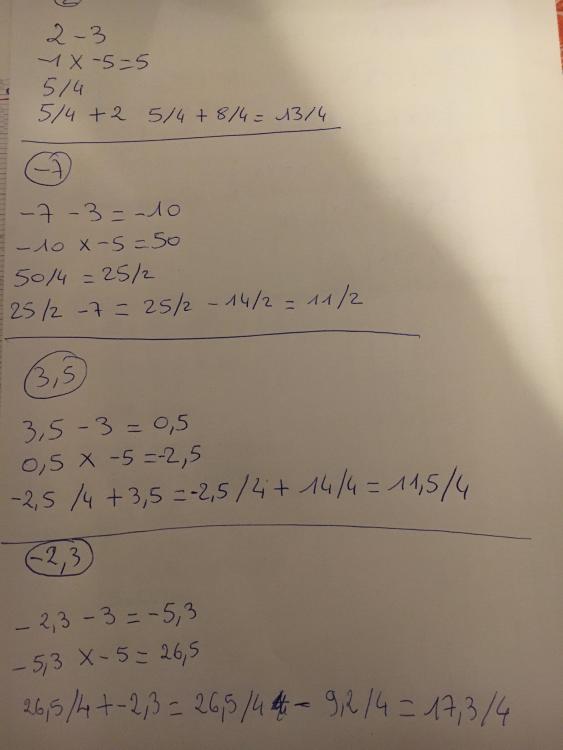 2 - 3
-1 x -5 = 5
5/4
5/4 + 2   5/4 + 8/4 = 13/4
-7
-7 - 3 = -10
-10 x -5 = 50
50/4 = 25/2
25/2 - 7 = 25/2 - 14/2 = 11/2
3,5
3,5 - 3 = 0,5
0,5 x -5 = -2,5
-2,5 /4 + 3,5 = -2,5/4 + 14/4 = 11,5/4
-2,3
-2,3 - 3 = -5,3
-5,3 x -5 = 26,5
26,5/4 + -2,3 = 26,5/4 - 9,2/4 = 17,3/4